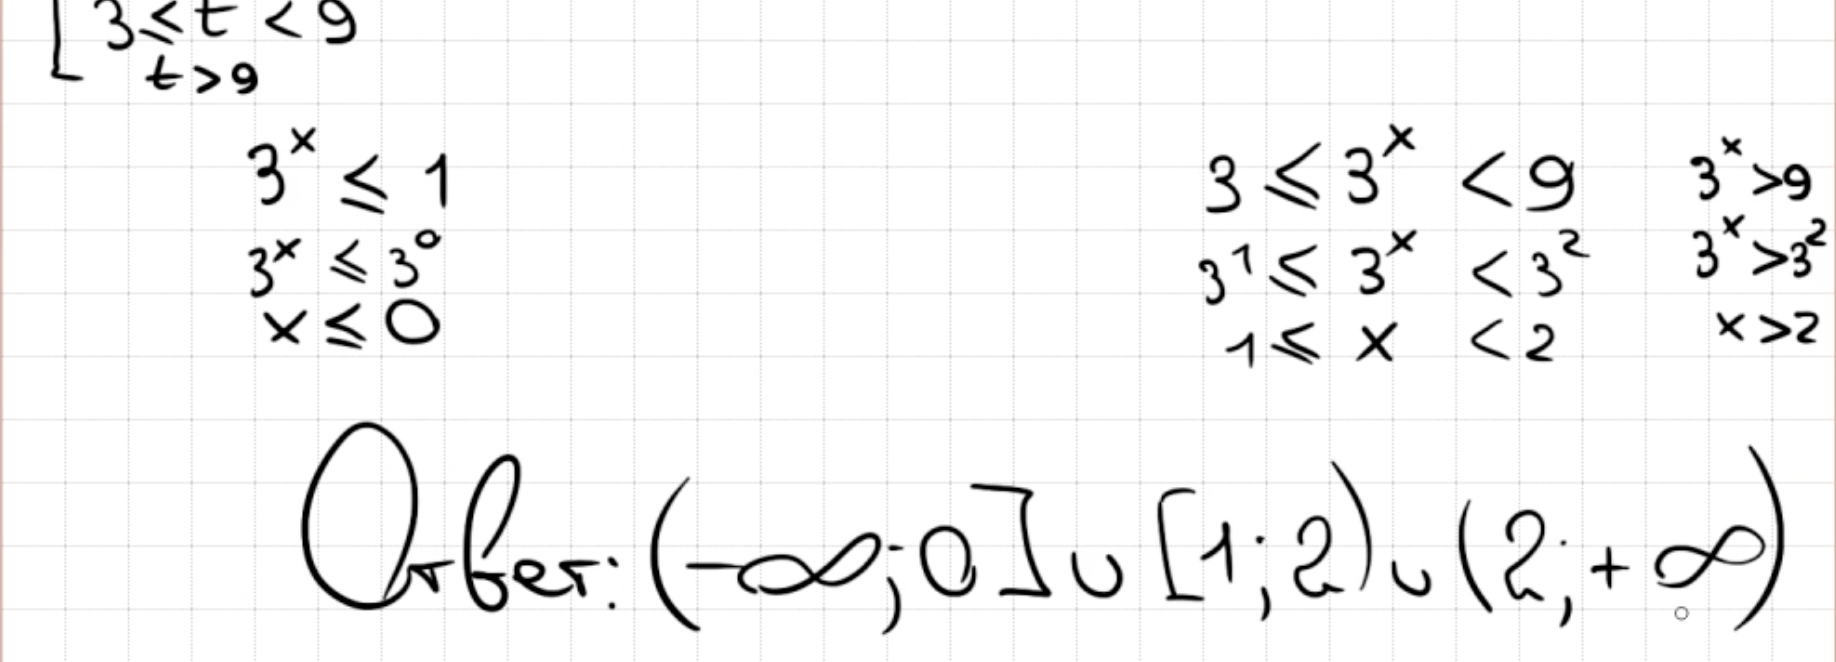 3 ≤ t < 9
t > 9
3ˣ ≤ 1
3ˣ ≤ 3⁰
x ≤ 0
3 ≤ 3ˣ < 9
3¹ ≤ 3ˣ < 3²
1 ≤ x < 2
3ˣ > 9
3ˣ > 3²
x > 2
Ответ: (-∞; 0] ∪ [1; 2) ∪ (2; +∞)